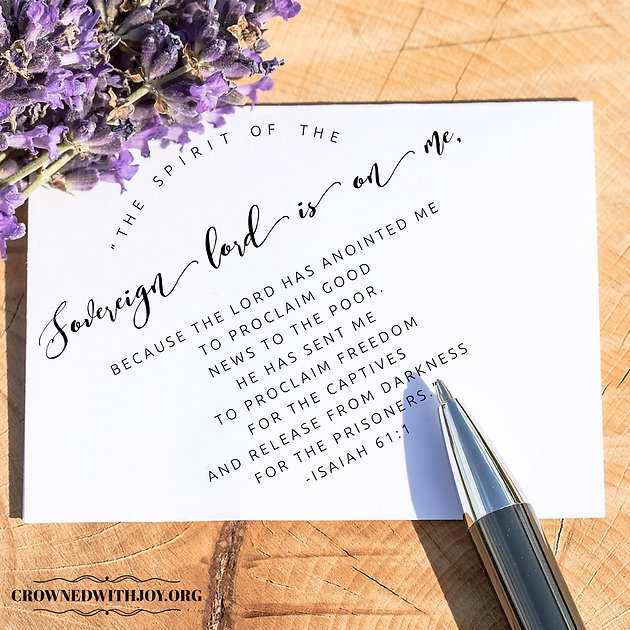 "THE SPIRIT OF THE
Sovereign lord is on me,
BECAUSE THE LORD HAS ANOINTED ME
TO PROCLAIM GOOD
NEWS TO THE POOR.
HE HAS SENT ME
TO PROCLAIM FREEDOM
FOR THE CAPTIVES
AND RELEASE FROM DARKNESS
FOR THE PRISONERS."
-ISAIAH 61:1
CROWNEDWITHJOY.ORG